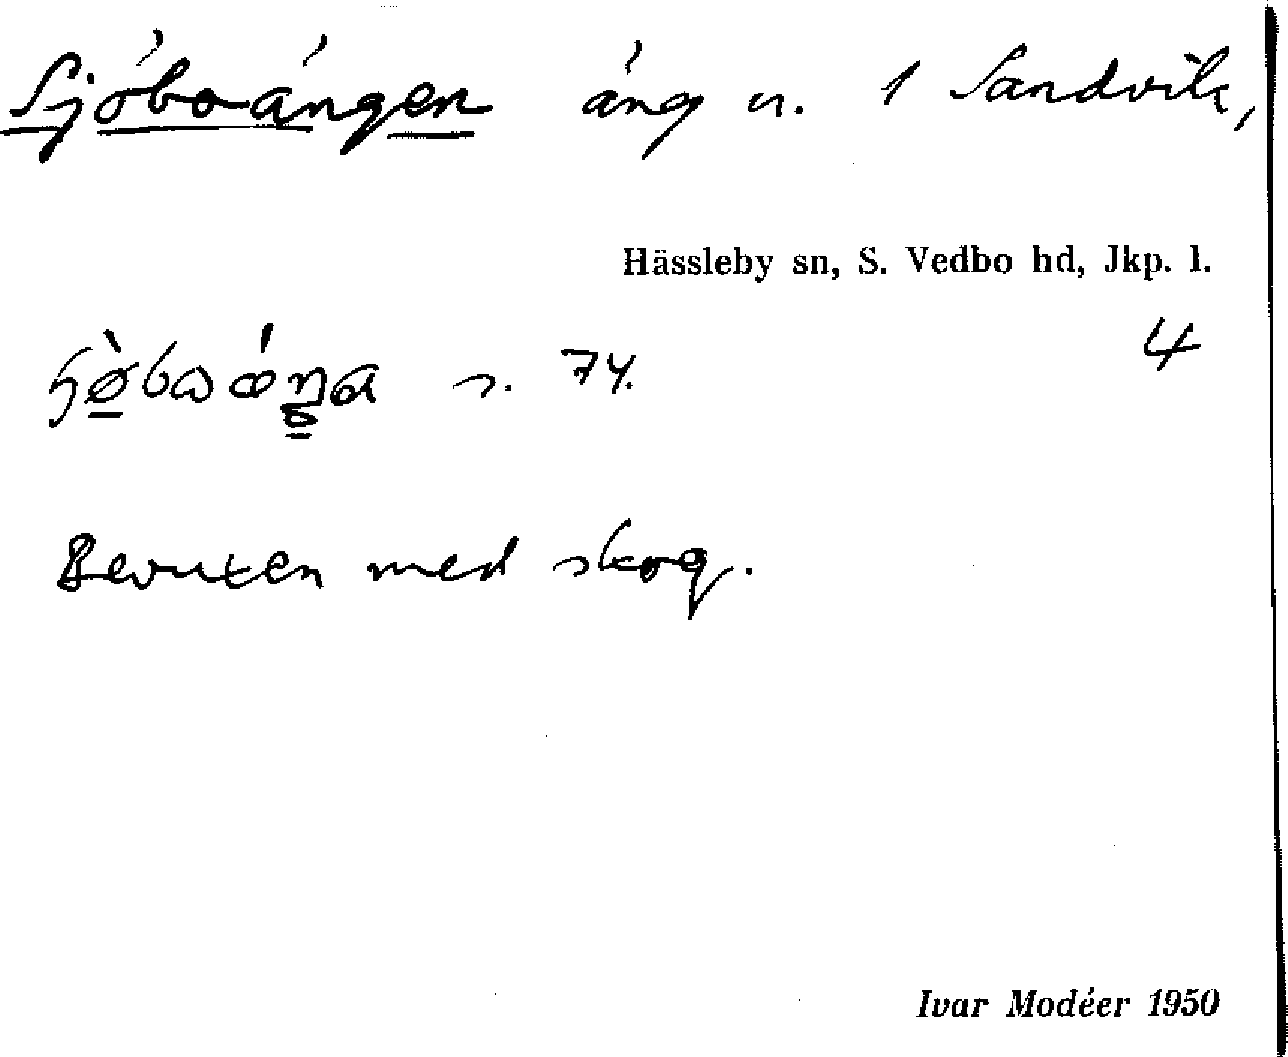 Sjöboängen äng u. 1 Sandvik,
Hässleby sn, S. Vedbo hd, Jkp. l.
4
s. 74.
Bevuxen med skog.
Ivar Modéer 1950